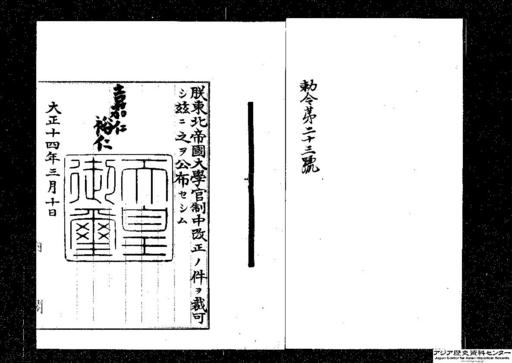 勅令第二十三號
朕東北帝國大學官制中改正ノ件ヲ裁可
シ玆ニ之ヲ公布セシム
嘉仁
裕仁
天皇
御璽
大正十四年三月十日
内閣
アジア歴史資料センター
Japan Center for Asian Historical Records